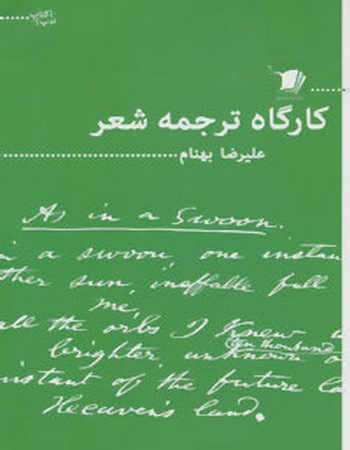 کارگاه ترجمه شعر
علیرضا بهنام
As in a Swoon.
in a swoon, one instan
ther sun, ineffable full
me,
all the orbs I knew
ten thousand
brighter, unknown
instant of the future la
Heaven's land.